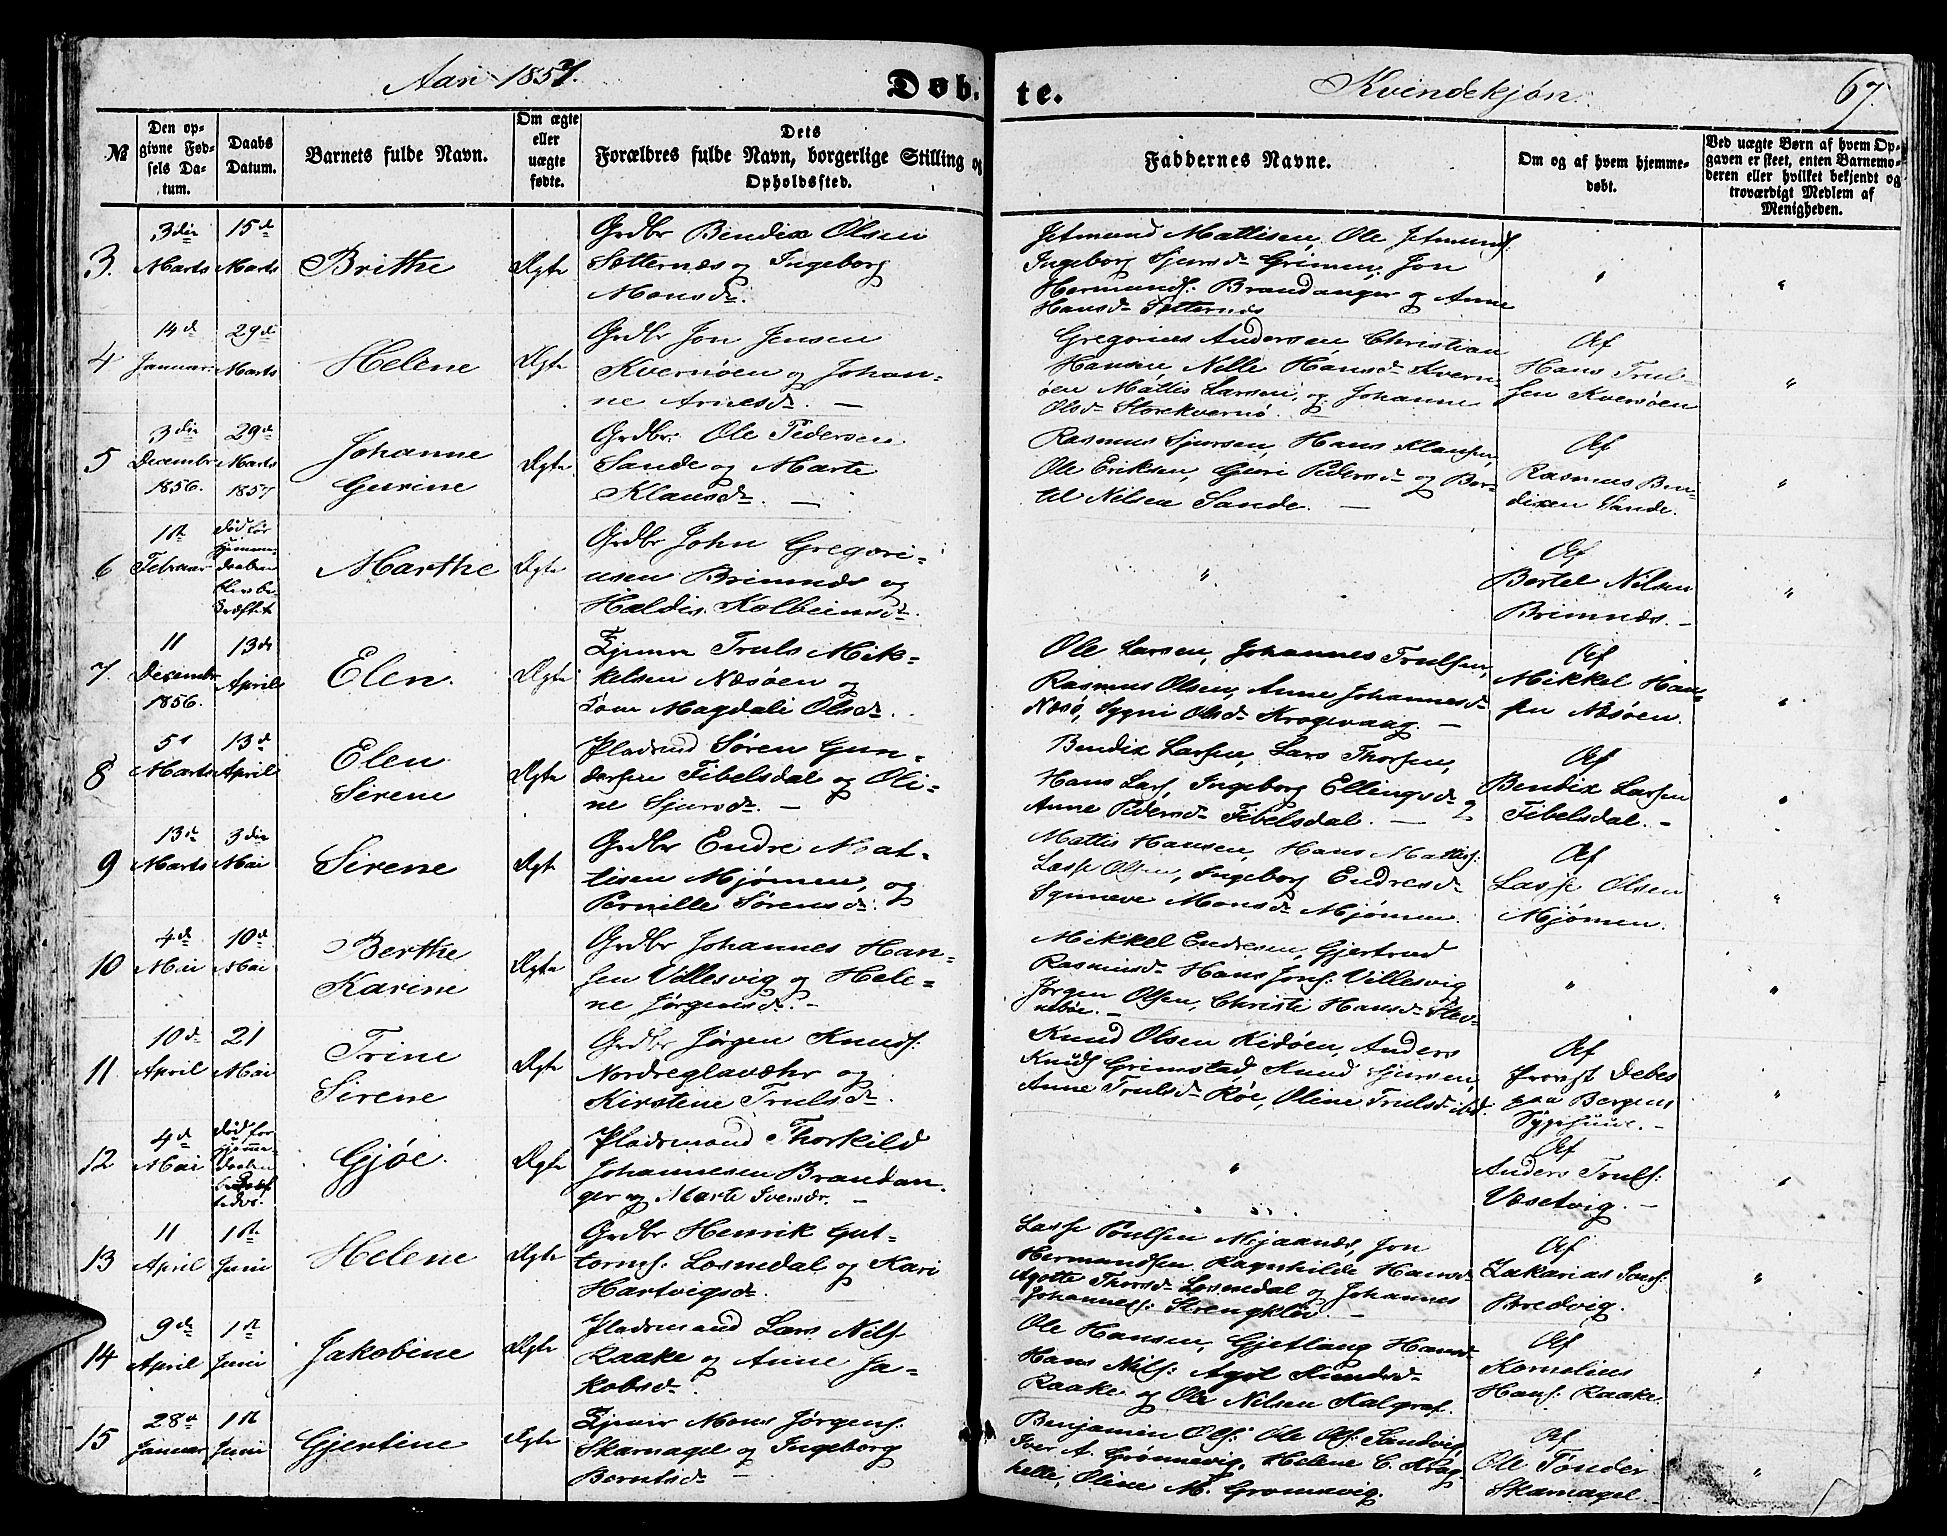 Aar 1857.
Døb-
te.
Kvindekjøn.
67
№
Den op-
givne Fød-
sels Da-
tum.
Daabs
Datum.
Barnets fulde Navn.
Om ægte
eller
uægte
fødte.
Dets
Forældres fulde Navn, borgerlige Stilling og
Opholdssted.
Faddernes Navne.
Om og af hvem hjemme-
døbt.
Ved uægte Børn af hvem Op-
gaven er skeet, enten Barnemo-
deren eller hvilket bekjendt og
troværdigt Medlem af
Menigheden.
3.
3die
Marts
15de
Marts
Brithe
Ægte
Grdbr Bendix Olsen
Sætternæs og Ingeborg
Monsdr.
Jetmund Mattisen, Ole Jetmunds:
Ingeborg Sjursdr Grimen, Jon
Hermunds: Brandanger og Anne
Hansdr Sætternæs
4
14de
Januar
29de
Marts
Helene
Ægte
Grdbr Jon Jensen
Kvernøen og Johan-
ne Arnesdr. —
Gregorius Andersen Christian
Hansen, Nille Hansdr Kvern-
øen Mattis Larsen, og Johanne
Olsdr Storekvernø.
Af
Hans Trul-
sen Kvernøen
5
3die
Decembr
1856.
29de
Marts
1857
Johanne
Gurine
Ægte.
Grdbr. Ole Pedersen
Sande og Marte
Klausdr. —
Rasmus Sjursen, Hans Klausen,
Ole Eriksen, Guri Pedersdr og Ber-
til Nilsen Sande. —
Af
Rasmus Ben-
dixen Sande.
6
1ste
Februar
død før
Hjemme-
daaben
blev be-
kræftet
Marthe
Ægte
Grdbr John Gregori-
usen Brimnæs og
Haldis Kolbeinsdr.
Af
Bertel Nilsen
Brimnæs. —
7.
11
Decembr
1856.
13de
April
Elen.
Ægte
Truls Mik-
kelsen Næsøen og
Magdali Olsdr.
Ole Larsen, Johannes Trulsen,
Rasmus Olsen, Anne Johannesdr
Næsø, Sygni Olsdr Krogevaag. —
Af
Mikkel Han-
sen Næsøen.
8
5te
Marts
13de
April
Elen
Sirene
Ægte
Pladsmd Søren Gun-
dersen Fibelsdal og Oli-
ne Sjursdr. —
Bendix Larsen, Lars Thorsen,
Hans Lars, Ingeborg Ellingsdr
Anne Pedersdr Fibelsdal. —
Af
Bendix Larsen
Fibelsdal. —
9
13de
Marts
3die
Mai
Sirene
Ægt
Grdbr Endre Mat-
tisen Mjømen, og
Pernille Sørensdr.
Mattis Hansen, Hans Mattis:
Lasse Olsen, Ingeborg Endresdr
Synneve Monsdr Mjømen.
Af
Lasse Olsen
Mjømen.
10
4de
Mai
10de
Mai
Berthe
Karine
Ægte
Grdbr Johannes Han-
sen Villesvig og Hele-
ne Jørgensdr. —
Mikkel Endresen, Gjertrud
Rasmusdr Hans Jons: Villesvig
Jørgen Olsen, Christi Hansdr Stev-
nebøe. —
11
10de
April
21
Mai
Trine
Sirene
Ægte
Grdbr Jørgen Knuds:
Nordreglavæhr og
Kirstine Trulsdr.
Knud Olsen Kidøen, Anders
Knuds Grimstad, Knud Sjursen,
Anne Trulsdr Røe, Oline Trulsdr ibd.
Af
Provst Debes
paa Bergens
Sygehuus. —
12
4de
Mai
død før
hjemme-
daaben
Gjøe.
Ægte
Pladsmand Thorkild
Johannesen Brandan-
ger og Marte Iversdr. —
Af
Anders Truls:
Væsetvig. —
13
11
April
1ste
Juni
Helene
Ægte
Grdbr Henrik Gut-
torms: Losnedal og Kari
Hartvigsdr.
Lasse Poulsen Mjaanæs, Jon
Hermundsen, Ragnhilde Hansdr
Agotte Thorsdr Losnedal og Johannes
Johannes: Strengklev. —
Af
Zakarias Jons:
Bredvig.
14
9de
April
1ste
Juni
Jakobine
Ægte
Pladsmand Lars Nils
Raake og Anne Ja-
kobsdr.
Ole Hansen, Gjetlaug Hansdr
Hans Nils: Agot Knudsdr
Raake og Ole Nilsen Kalgraf.
Af
Kornelius
Hans: Raake.
15
28de
Januar
1ste
Juni
Gjertine
Ægte
Mons Jørgens:
Skarnagel og Ingeborg
Berntsdr —
Benjamin Ols: Ole Ols: Sandvig,
Iver A. Grønnevig, Helene C. Krag-
helle, Oline M. Grønnevig.
Af
Ole Tønder
Skarnagel.